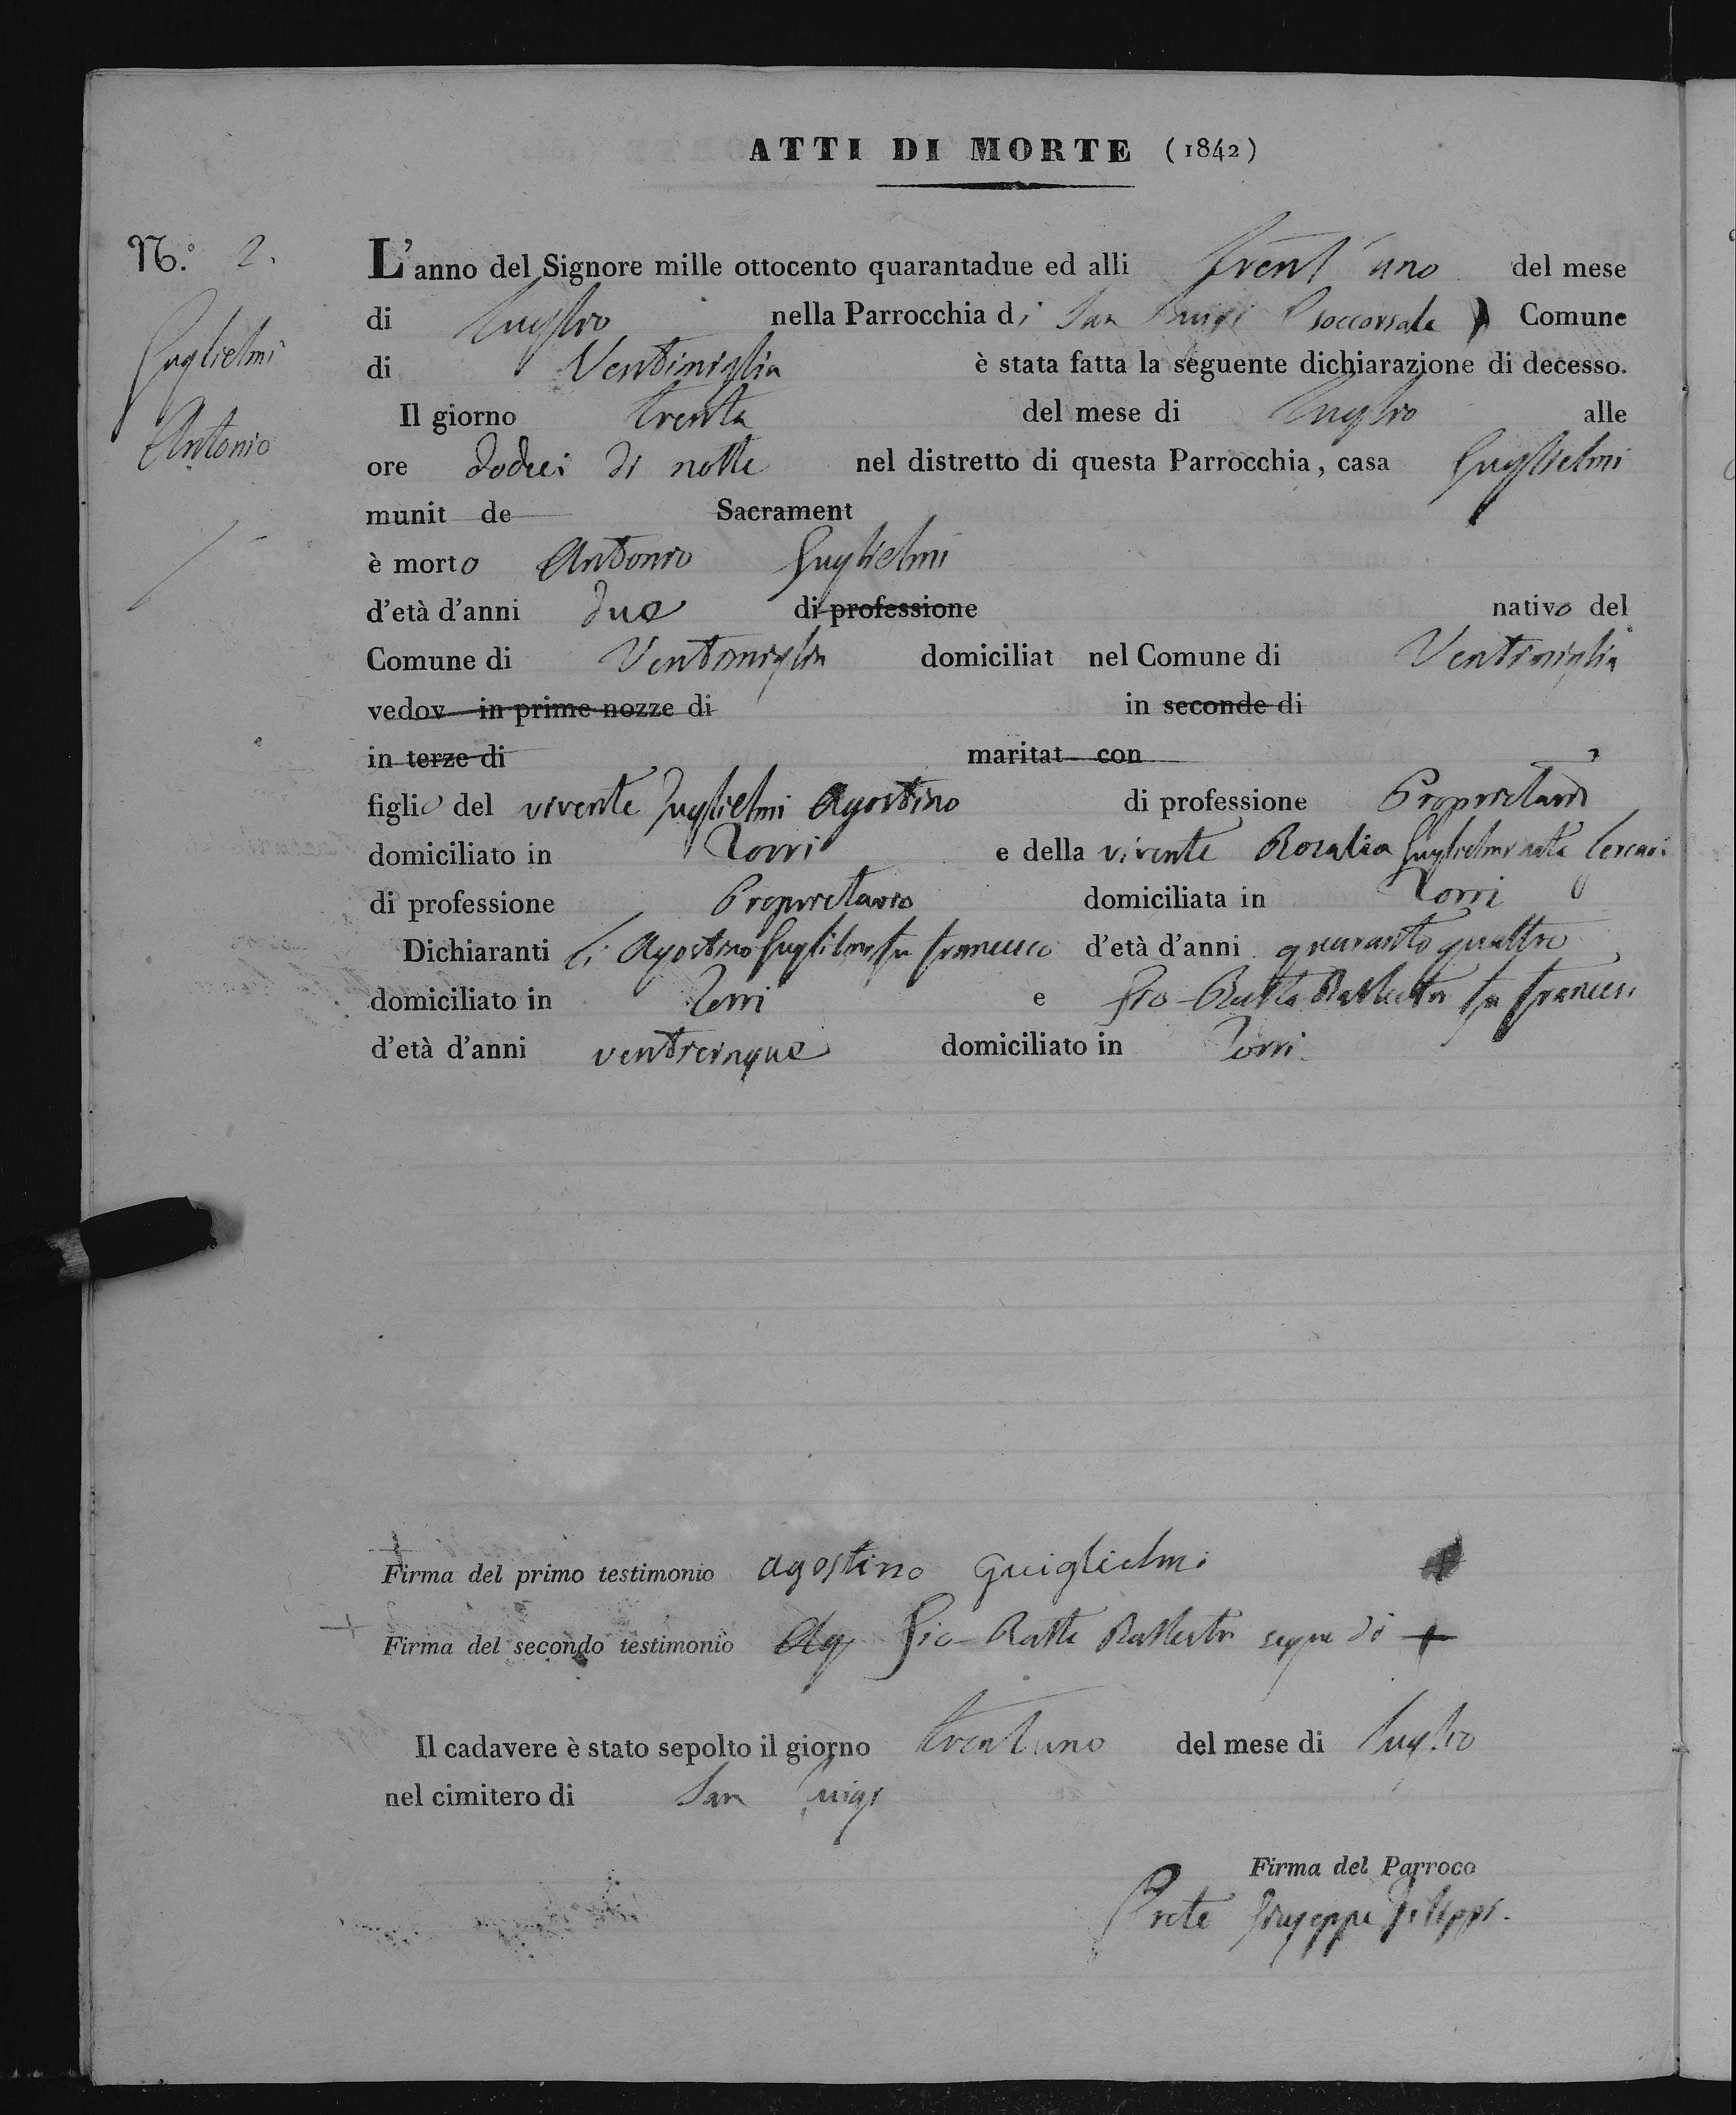 ATTI DI MORTE (1842)
N.º 2.
Guglielmi
Antonio
L'anno del Signore mille ottocento quarantadue ed alli trent'uno del mese
di Luglio nella Parrocchia di San Luigi (soccorsale) Comune
di Ventimiglia è stata fatta la seguente dichiarazione di decesso.
Il giorno trenta del mese di Luglio alle
ore dodeci di notte nel distretto di questa Parrocchia, casa Guglielmi
munit de Sacrament
è morto Antonio Guglielmi
d'età d'anni due di professione nativo del
Comune di Ventimiglia domiciliat nel Comune di Ventimiglia
vedov in prime nozze di in seconde di
in terze di maritat con
figlio del vivente Guglielmi Agostino di professione Proprietario
domiciliato in Torri e della vivente Rosalia Guglielmi nata
di professione Proprietaria domiciliata in Torri
Dichiaranti li Agostino Guglielmi fu Francesco d'età d'anni quarantaquattro
domiciliato in Torri e Gio-Batta Ballestra fu Francesco
d'età d'anni venticinque domiciliato in Torri
Firma del primo testimonio agostino Guiglielmi
Firma del secondo testimonio Gio-Batta Ballestra segno di +
Il cadavere è stato sepolto il giorno trent'uno del mese di Luglio
nel cimitero di San Luigi
Firma del Parroco
Prete Giuseppe Filippi.